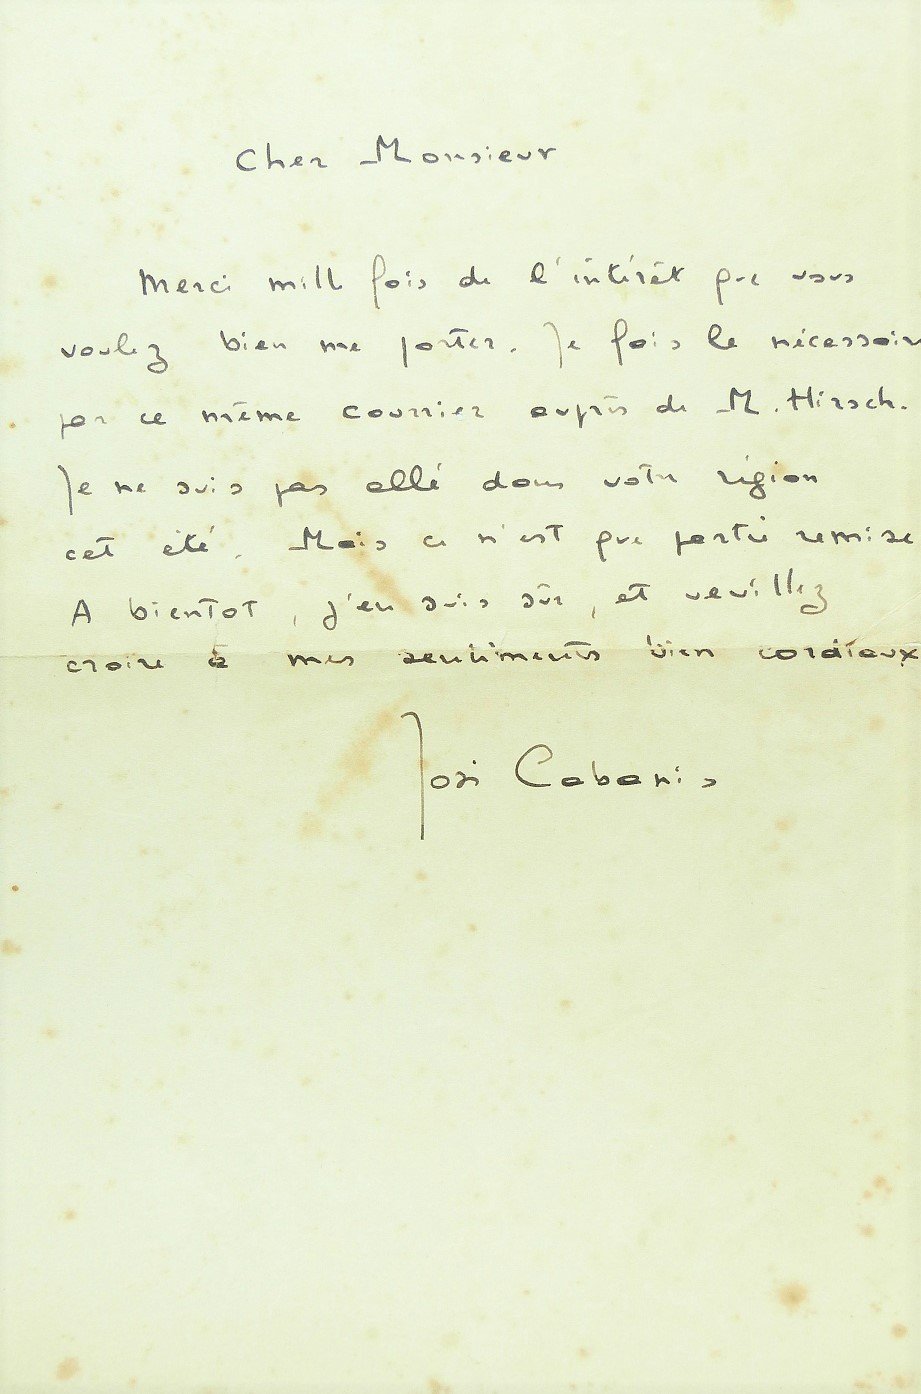 Cher Monsieur
Merci mille fois de l'intérêt que vous
voulez bien me porter. Je fais le nécessaire
par ce même courrier auprès de M. Hirsch.
Je ne suis pas allé dans votre région
cet été. Mais ce n'est que partie remise
A bientot, j'en suis sûr, et veuillez
croire à mes sentiments bien cordiaux
José Cabanis